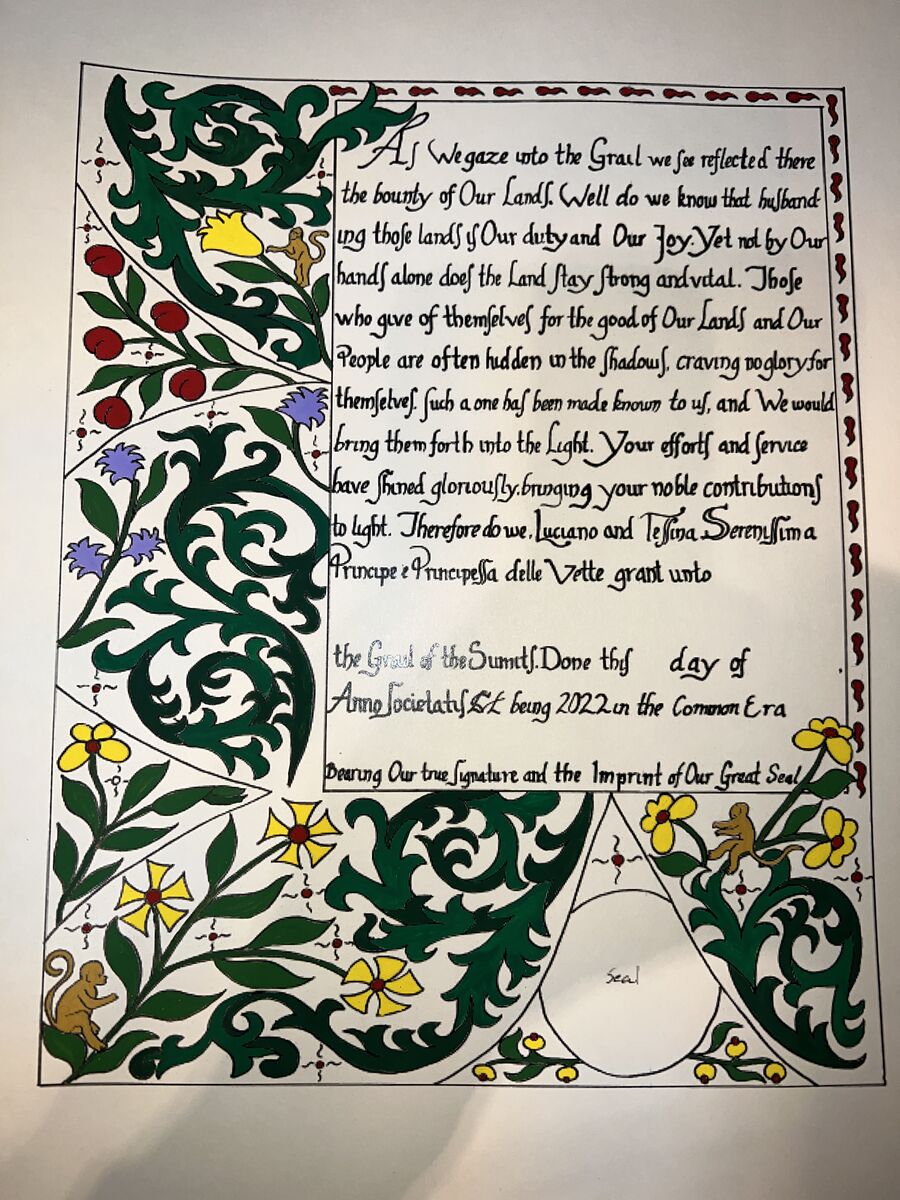 As We gaze into the Grail we see reflected there
the bounty of Our Lands. Well do we know that husband-
ing those lands is Our duty and Our Joy. Yet not by Our
hands alone does the Land stay strong and vital. Those
who give of themselves for the good of Our Lands and Our
People are often hidden in the shadows, craving no glory for
themselves. Such a one has been made known to us, and We would
bring them forth into the Light. Your efforts and service
have shined gloriously, bringing your noble contributions
to light. Therefore do we, Luciano and Tessina Serenissima
Principe e Principessa delle Vette grant unto
the Grail of the Sumits. Done this day of
Anno Societatis being 2022 in the Common Era
Bearing Our true signature and the Imprint of Our Great Seal
Seal